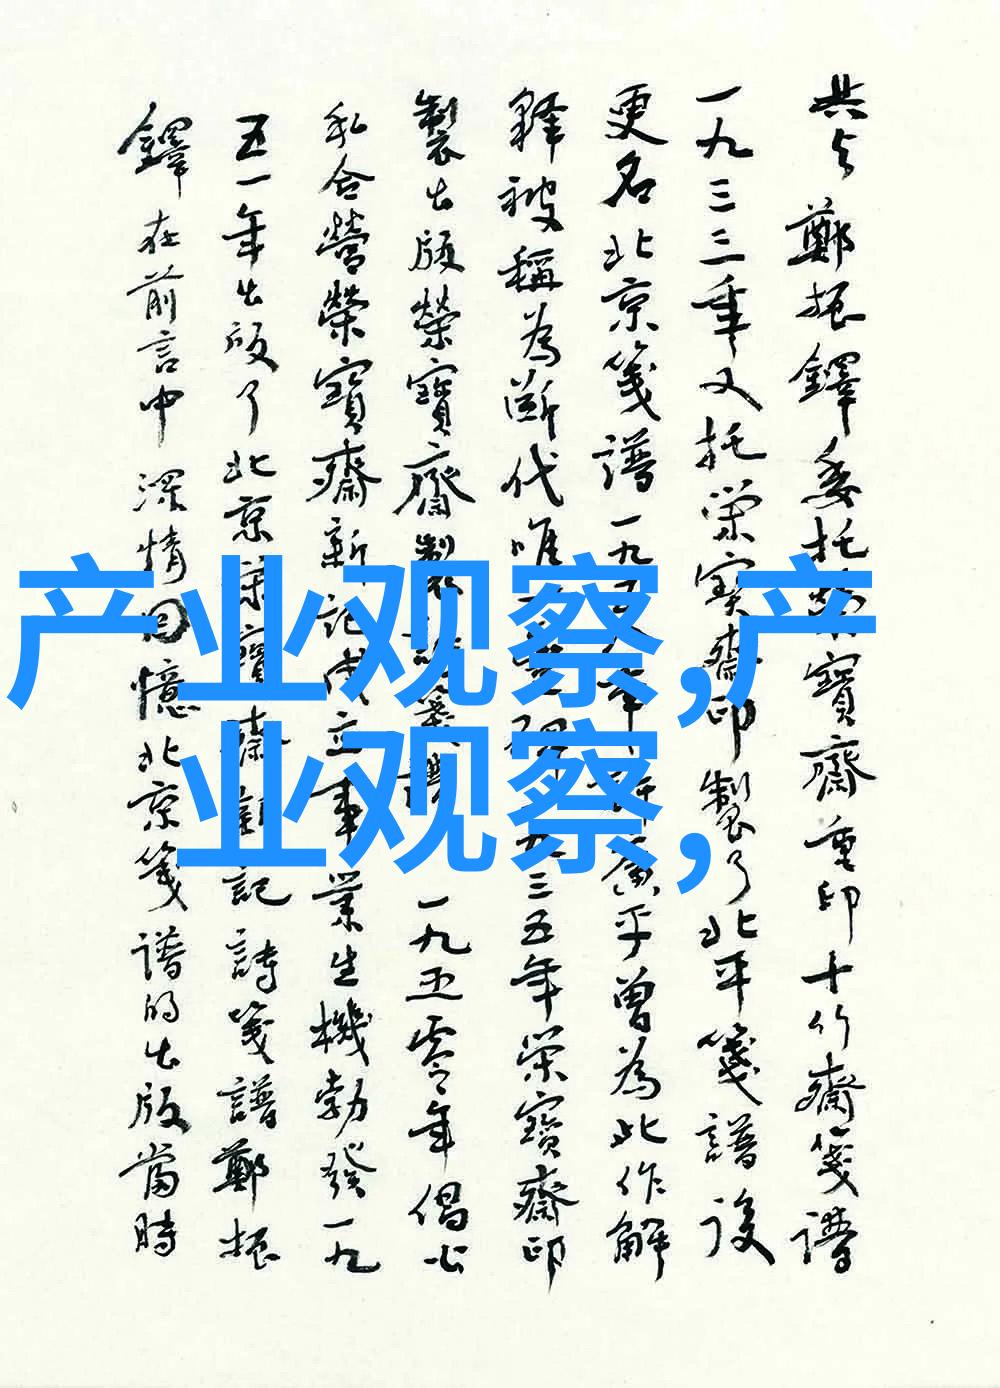 共与鄭振鐸委托榮寶齋重印十竹齋箋譜
一九三三年又托榮寶齋印製了北平箋譜後
更名北京箋譜一九五八年 平曾為此作解
釋被稱為断代唯 三五年榮寶齋印
製出版榮寶齋製 箋譜一九五零年倡公
私合營榮寶齋新記成立事業生機勃發一九
五一年出版了北京榮寶齋新記詩箋譜鄭振
鐸在前言中深情回憶北京箋譜的出版當時
产业观察,产
业观察,